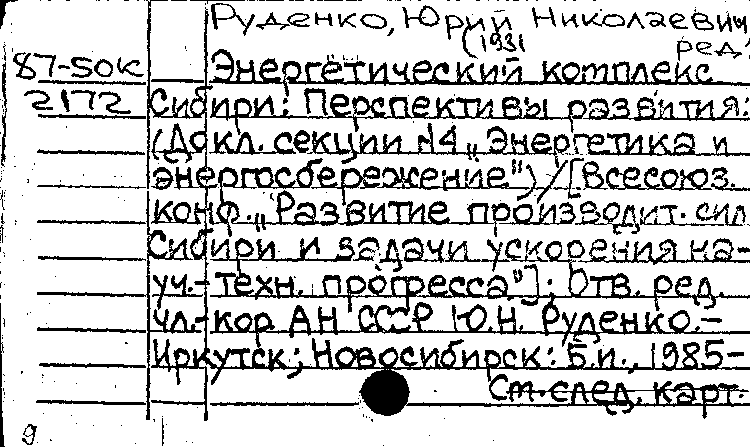 Руденко, Юрий Николаевич,
(1931 ред.
87-50К Энергетический комплекс
2172 Сибири: Перспективы развития:
(Докл. секции №4 „Энергетика и
энергосбережение") / [Всесоюз.
конф. „Развитие производит. сил
Сибири и задачи ускорения на-
уч.-техн. прогресса"]; Отв. ред.
чл.-кор АН СССР Ю.Н. Руденко.-
Иркутск; Новосибирск: Б.и., 1985-
См. след. карт.
g